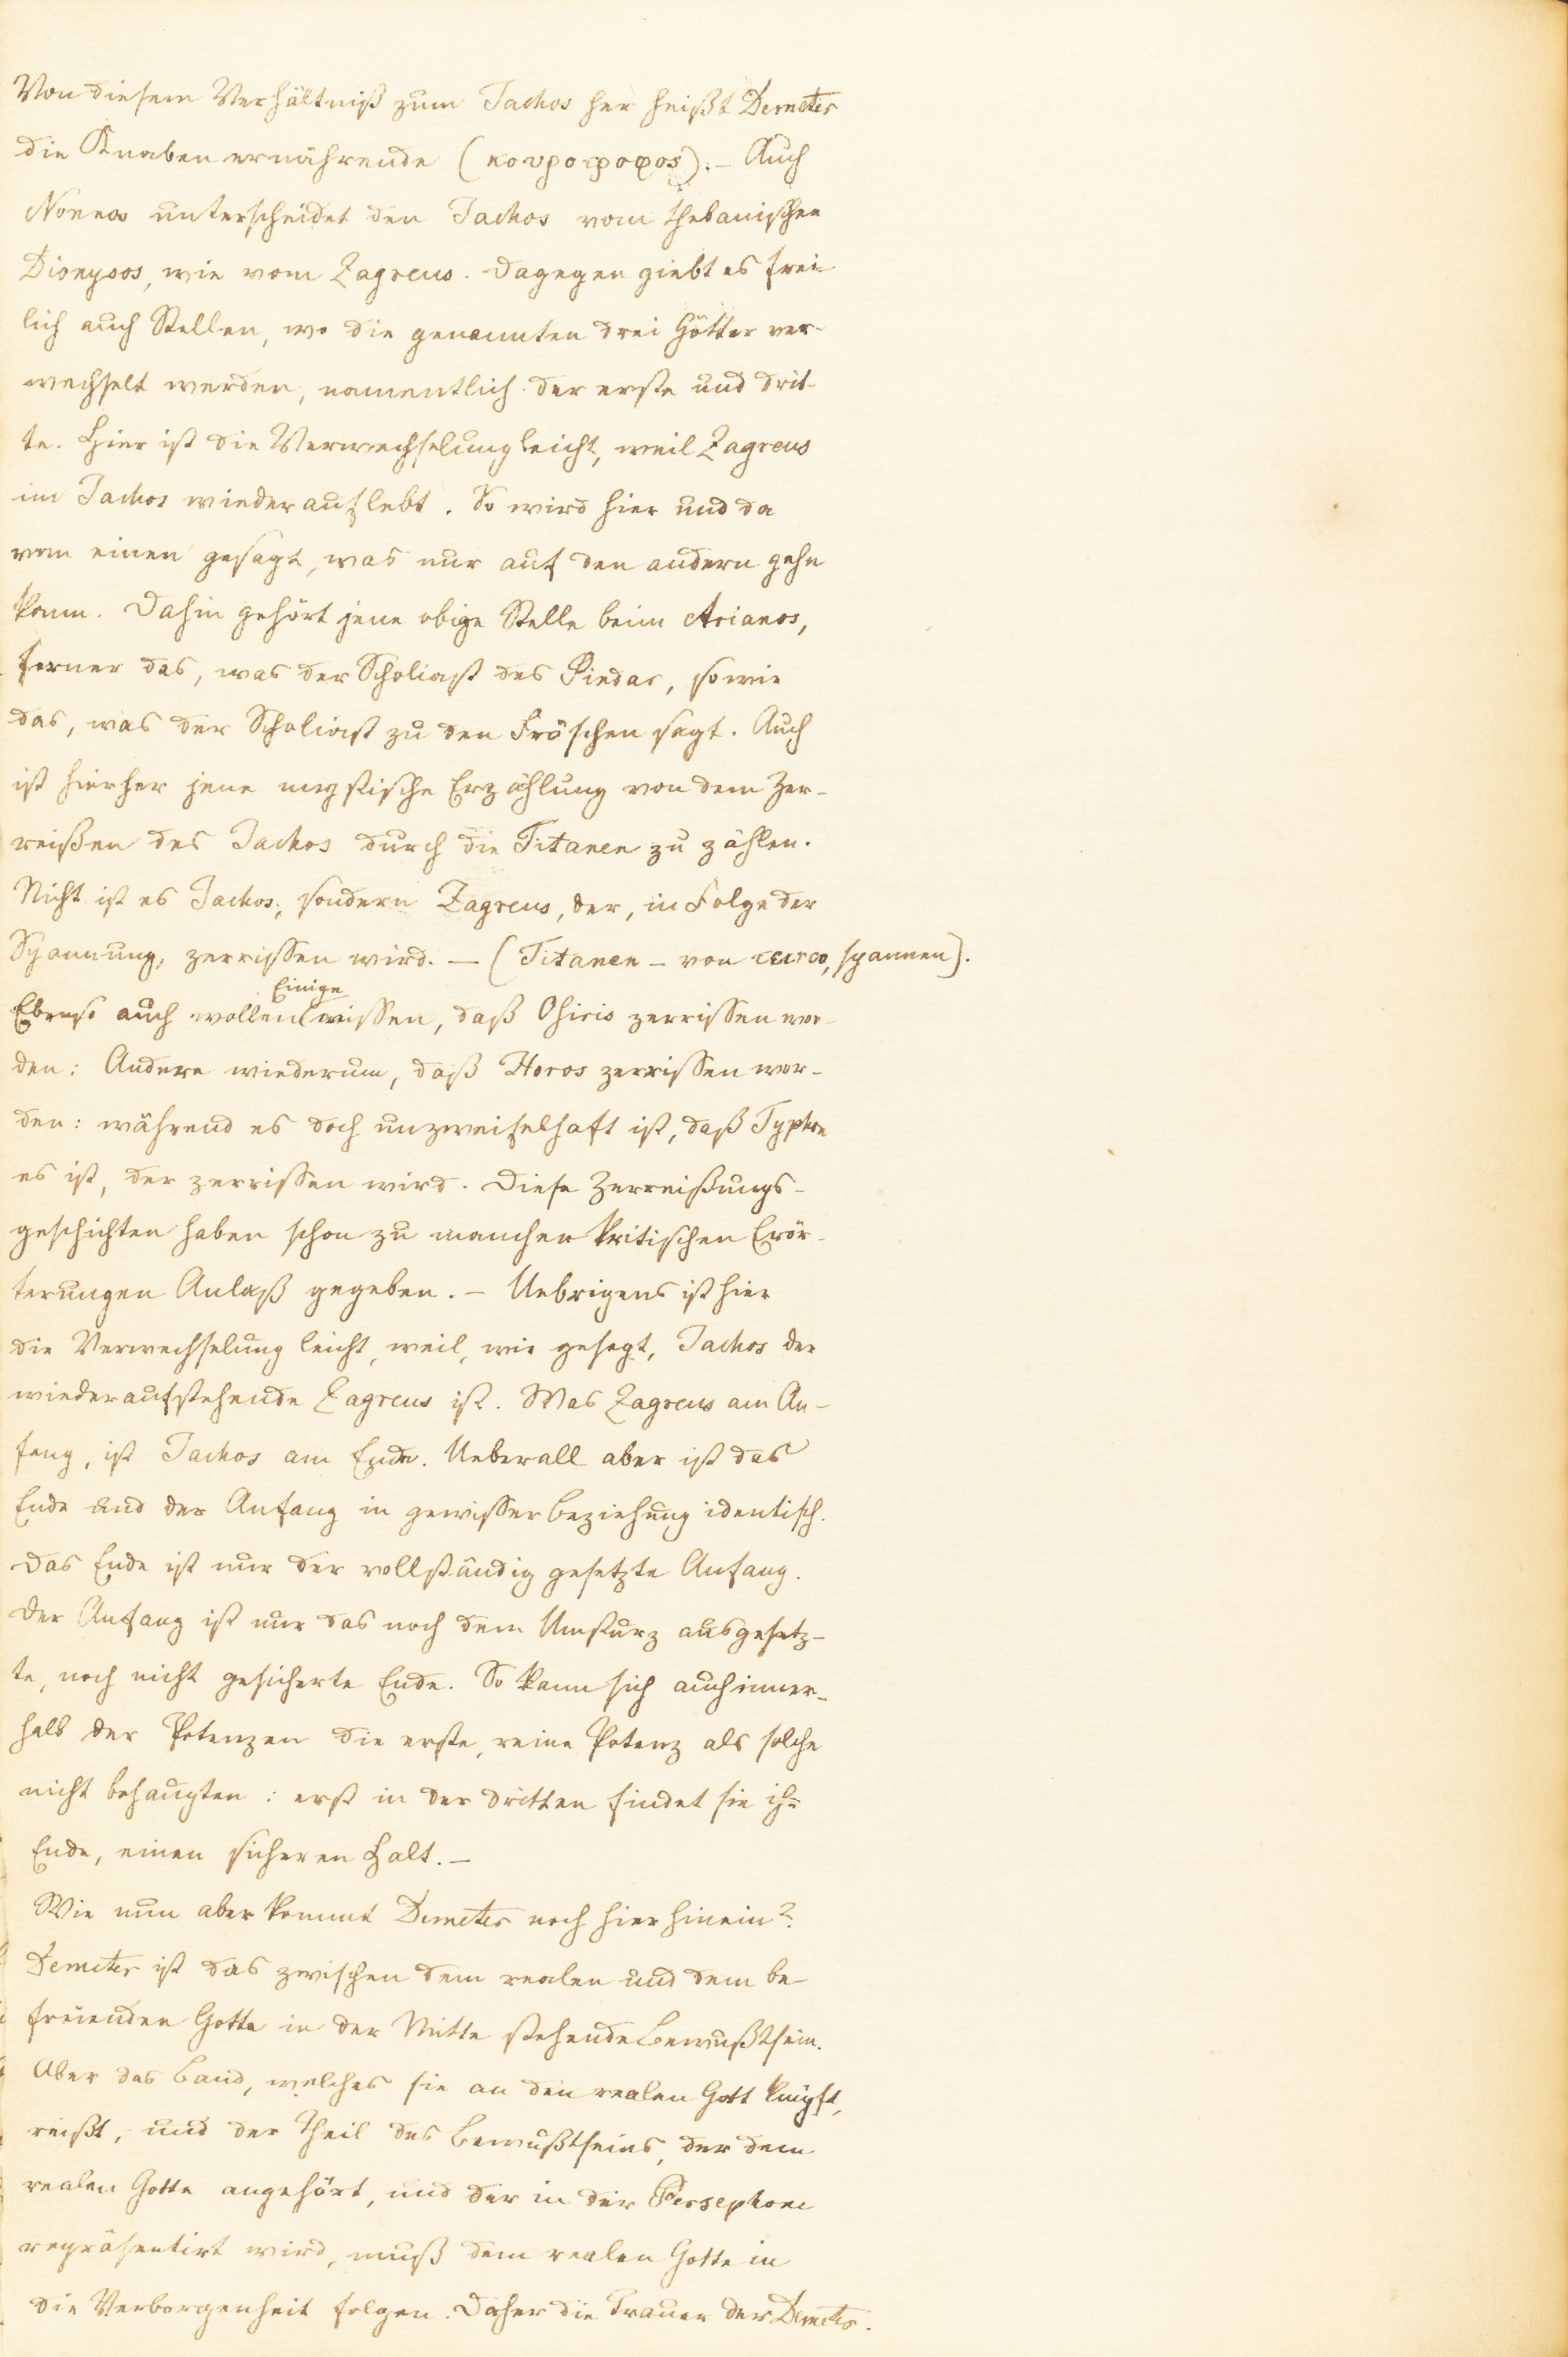 Von diesem Verhältniß zum Jachos her heißt Demeter
die Knaben ernährende (κουροτροφος). – Auch
Nonnos unterscheidet den Jachos vom thebanischen
Dionysos, wie vom Zagreus. Dagegen giebt es frei-
lich auch Stellen, wo die genannten drei Götter ver-
wechselt werden, namentlich der erste und drit-
te. Hier ist die Verwechselung leicht, weil Zagreus
im Jachos wieder auflebt. So wird hier und da
vom einen gesagt, was nur auf den andern gehn
kann. Dahin gehört jene obige Stelle beim Arianos,
ferner das, was der Scholiast des Pindar, sowie
das, was der Scholiast zu den Fröschen sagt. Auch
ist hierher jene mystische Erzählung von dem Zer-
reißen des Jachos durch die Titanen zu zählen.
Nicht ist es Jachos, sondern Zagreus, der, in Folge der
Spannung, zerrissen wird. – (Titanen – von τειτω, spannen).
Ebenso auch wollen Einige wissen, daß Osiris zerrissen wor-
den: Andere wiederum, daß Horos zerrissen wor-
den: während es doch unzweifelhaft ist, daß Typhon
es ist, der zerrissen wird. Diese Zerreißungs-
geschichten haben schon zu manchen kritischen Erör-
terungen Anlaß gegeben. – Uebrigens ist hier
die Verwechselung leicht, weil, wie gesagt, Jachos der
wiederaufstehende Zagreus ist. Was Zagreus am An-
fang, ist Jachos am Ende. Ueberall aber ist das
Ende und der Anfang in gewisser Beziehung identisch.
Das Ende ist nur der vollständig gesetzte Anfang.
Der Anfang ist nur das noch dem Umsturz ausgesetz-
te, noch nicht gesicherte Ende. So kann sich auch inner-
halb der Potenzen die erste, reine Potenz als solche
nicht behaupten: erst in der dritten findet sie ihr
Ende, einen sicheren Halt. –
Wie nun aber kommt Demeter noch hier hinein?
Demeter ist das zwischen dem realen und dem be-
freienden Gotte in der Mitte stehende Bewußtsein.
Aber das Band, welches sie an den realen Gott knüpft,
reißt, und der Theil des Bewußtseins, der dem
realen Gotte angehört, und der in der Persephone
repräsentirt wird, muß dem realen Gotte in
die Verborgenheit folgen. Daher die Trauer der Demeter.